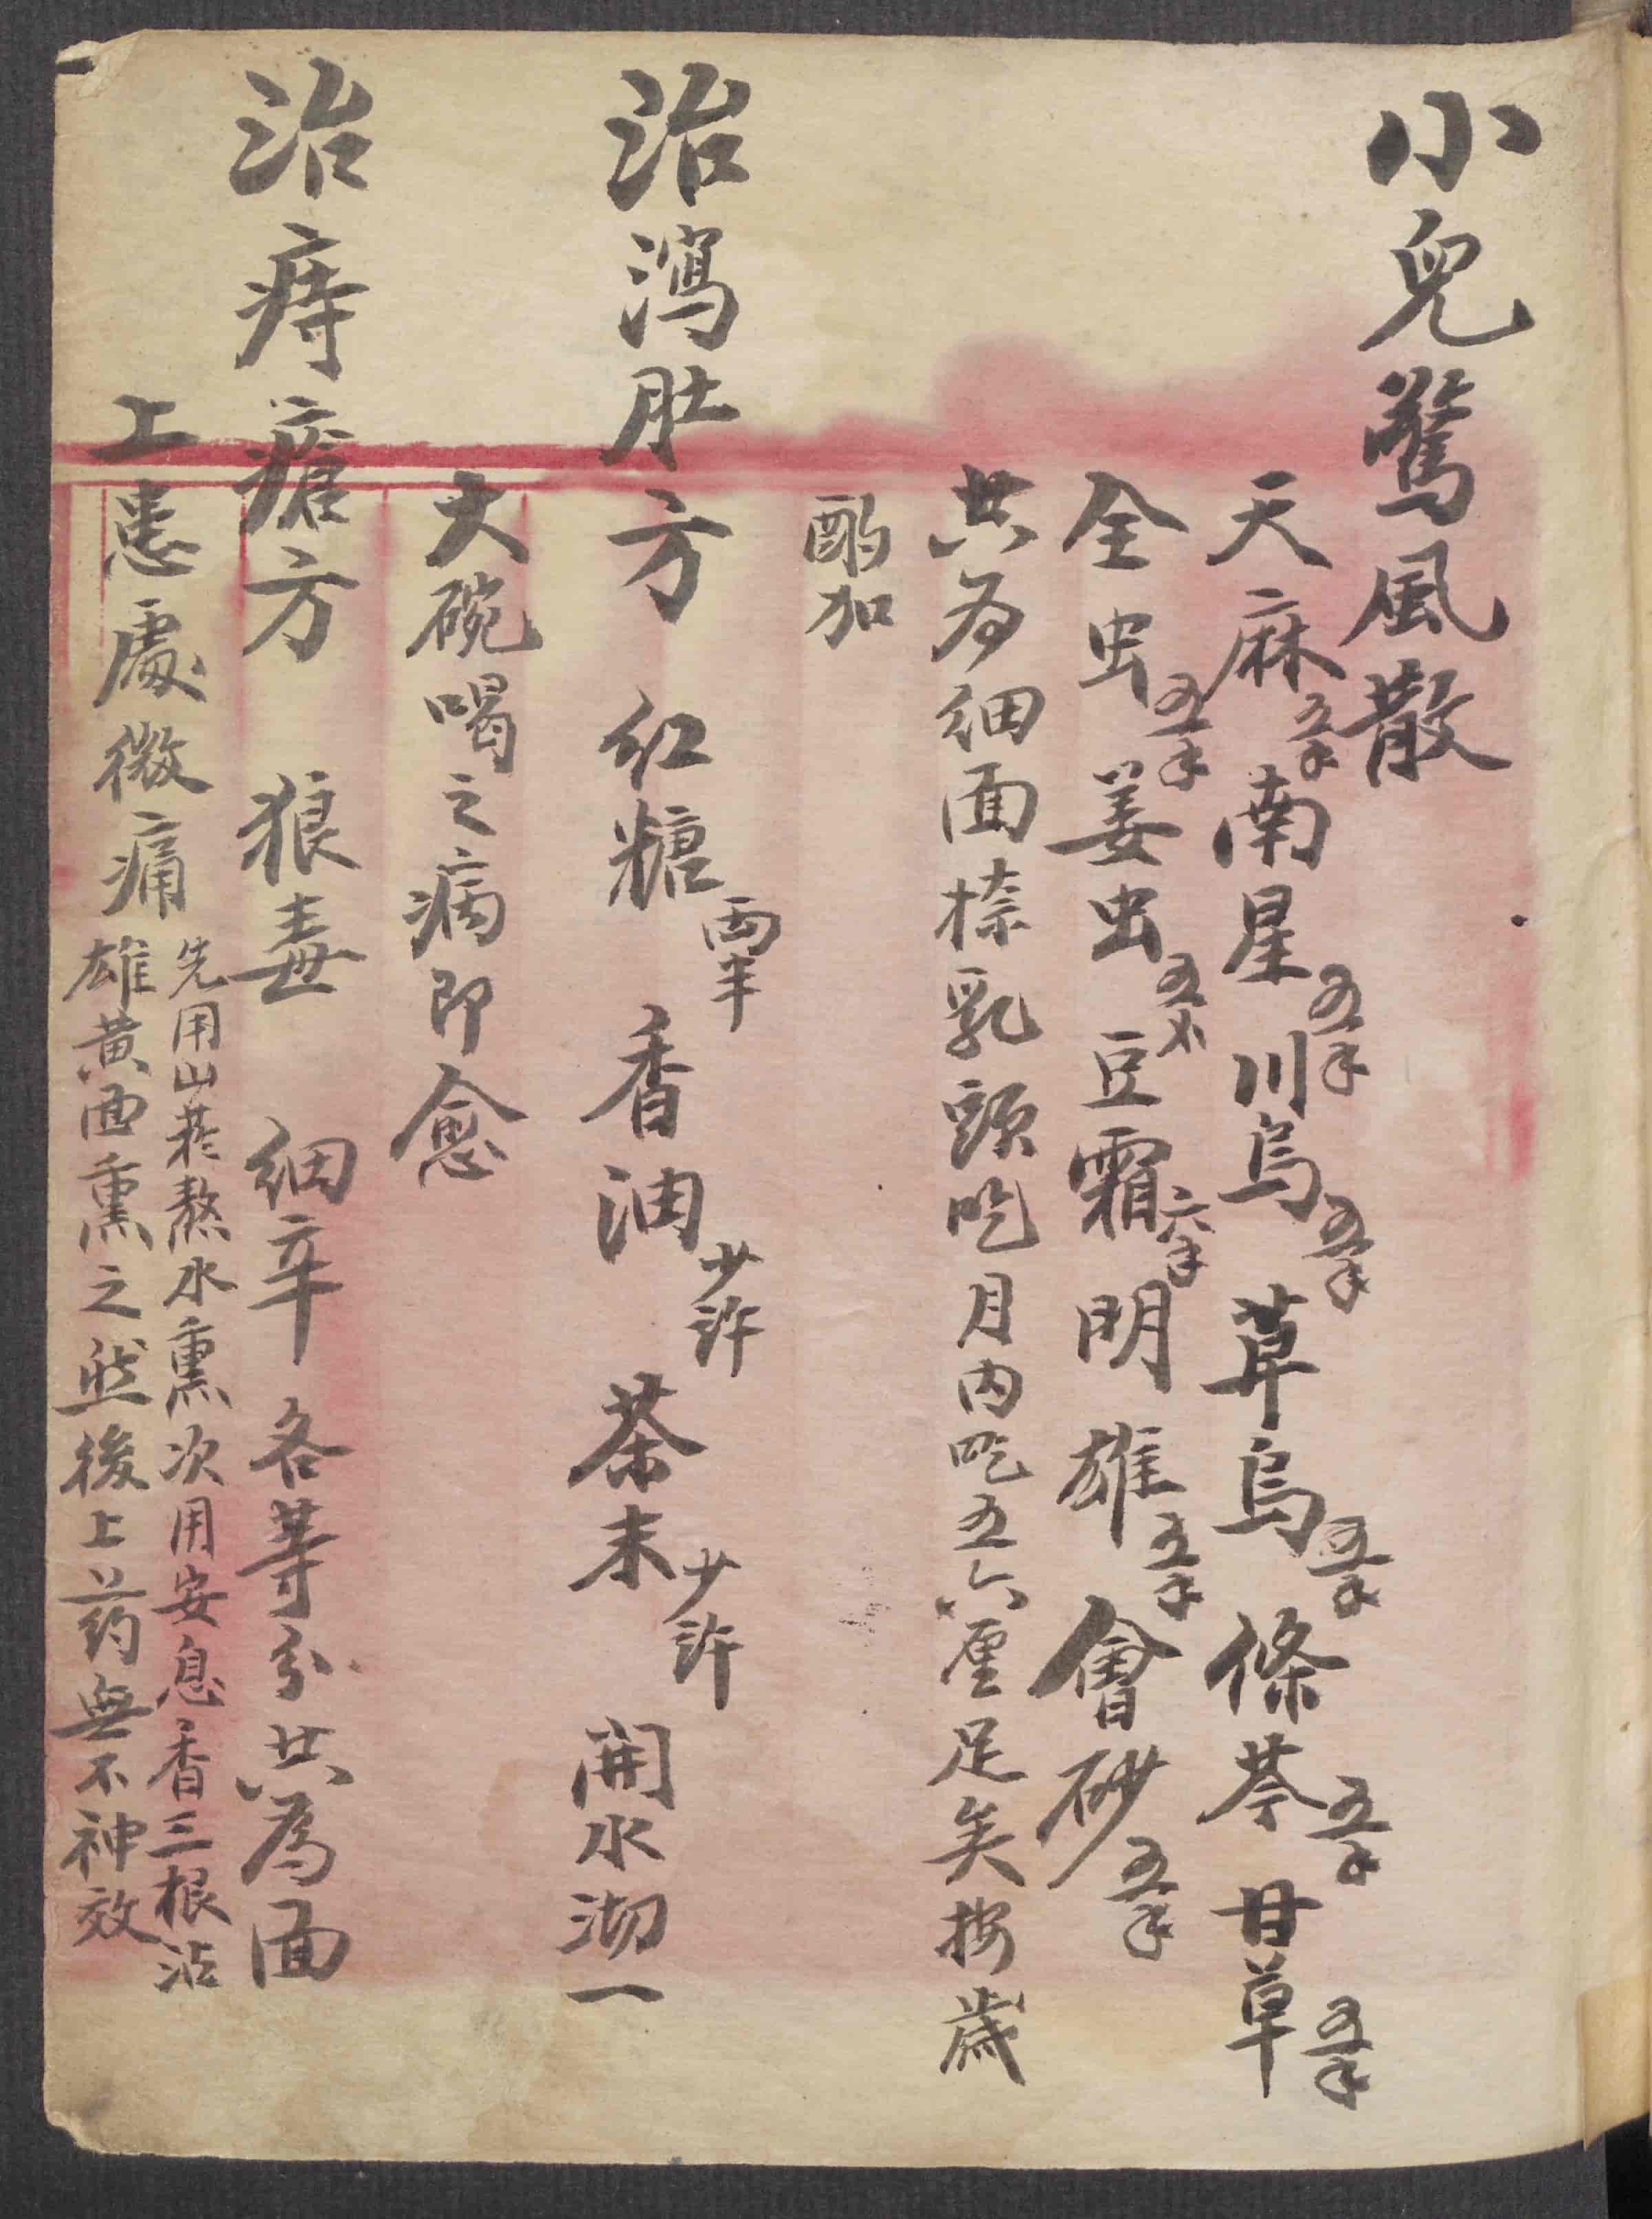 小兒驚風散
天麻五手南星五手川烏五手草烏五手條芩五手甘草五手
全虫五手姜虫五豆霜六手明雄五手會砂五手
共为細面捺乳頭吃月内吃五六厘足矣按歲
酌加
治瀉肚方 紅糖兩半 香油少許 茶末少許 開水沏一
大碗喝之病即愈
治痔瘡方 狼毒 細辛 各等分共為面
上患處微痛 先用山菜熬水熏次用安息香三根沾
雄黄面熏之然後上药無不神效